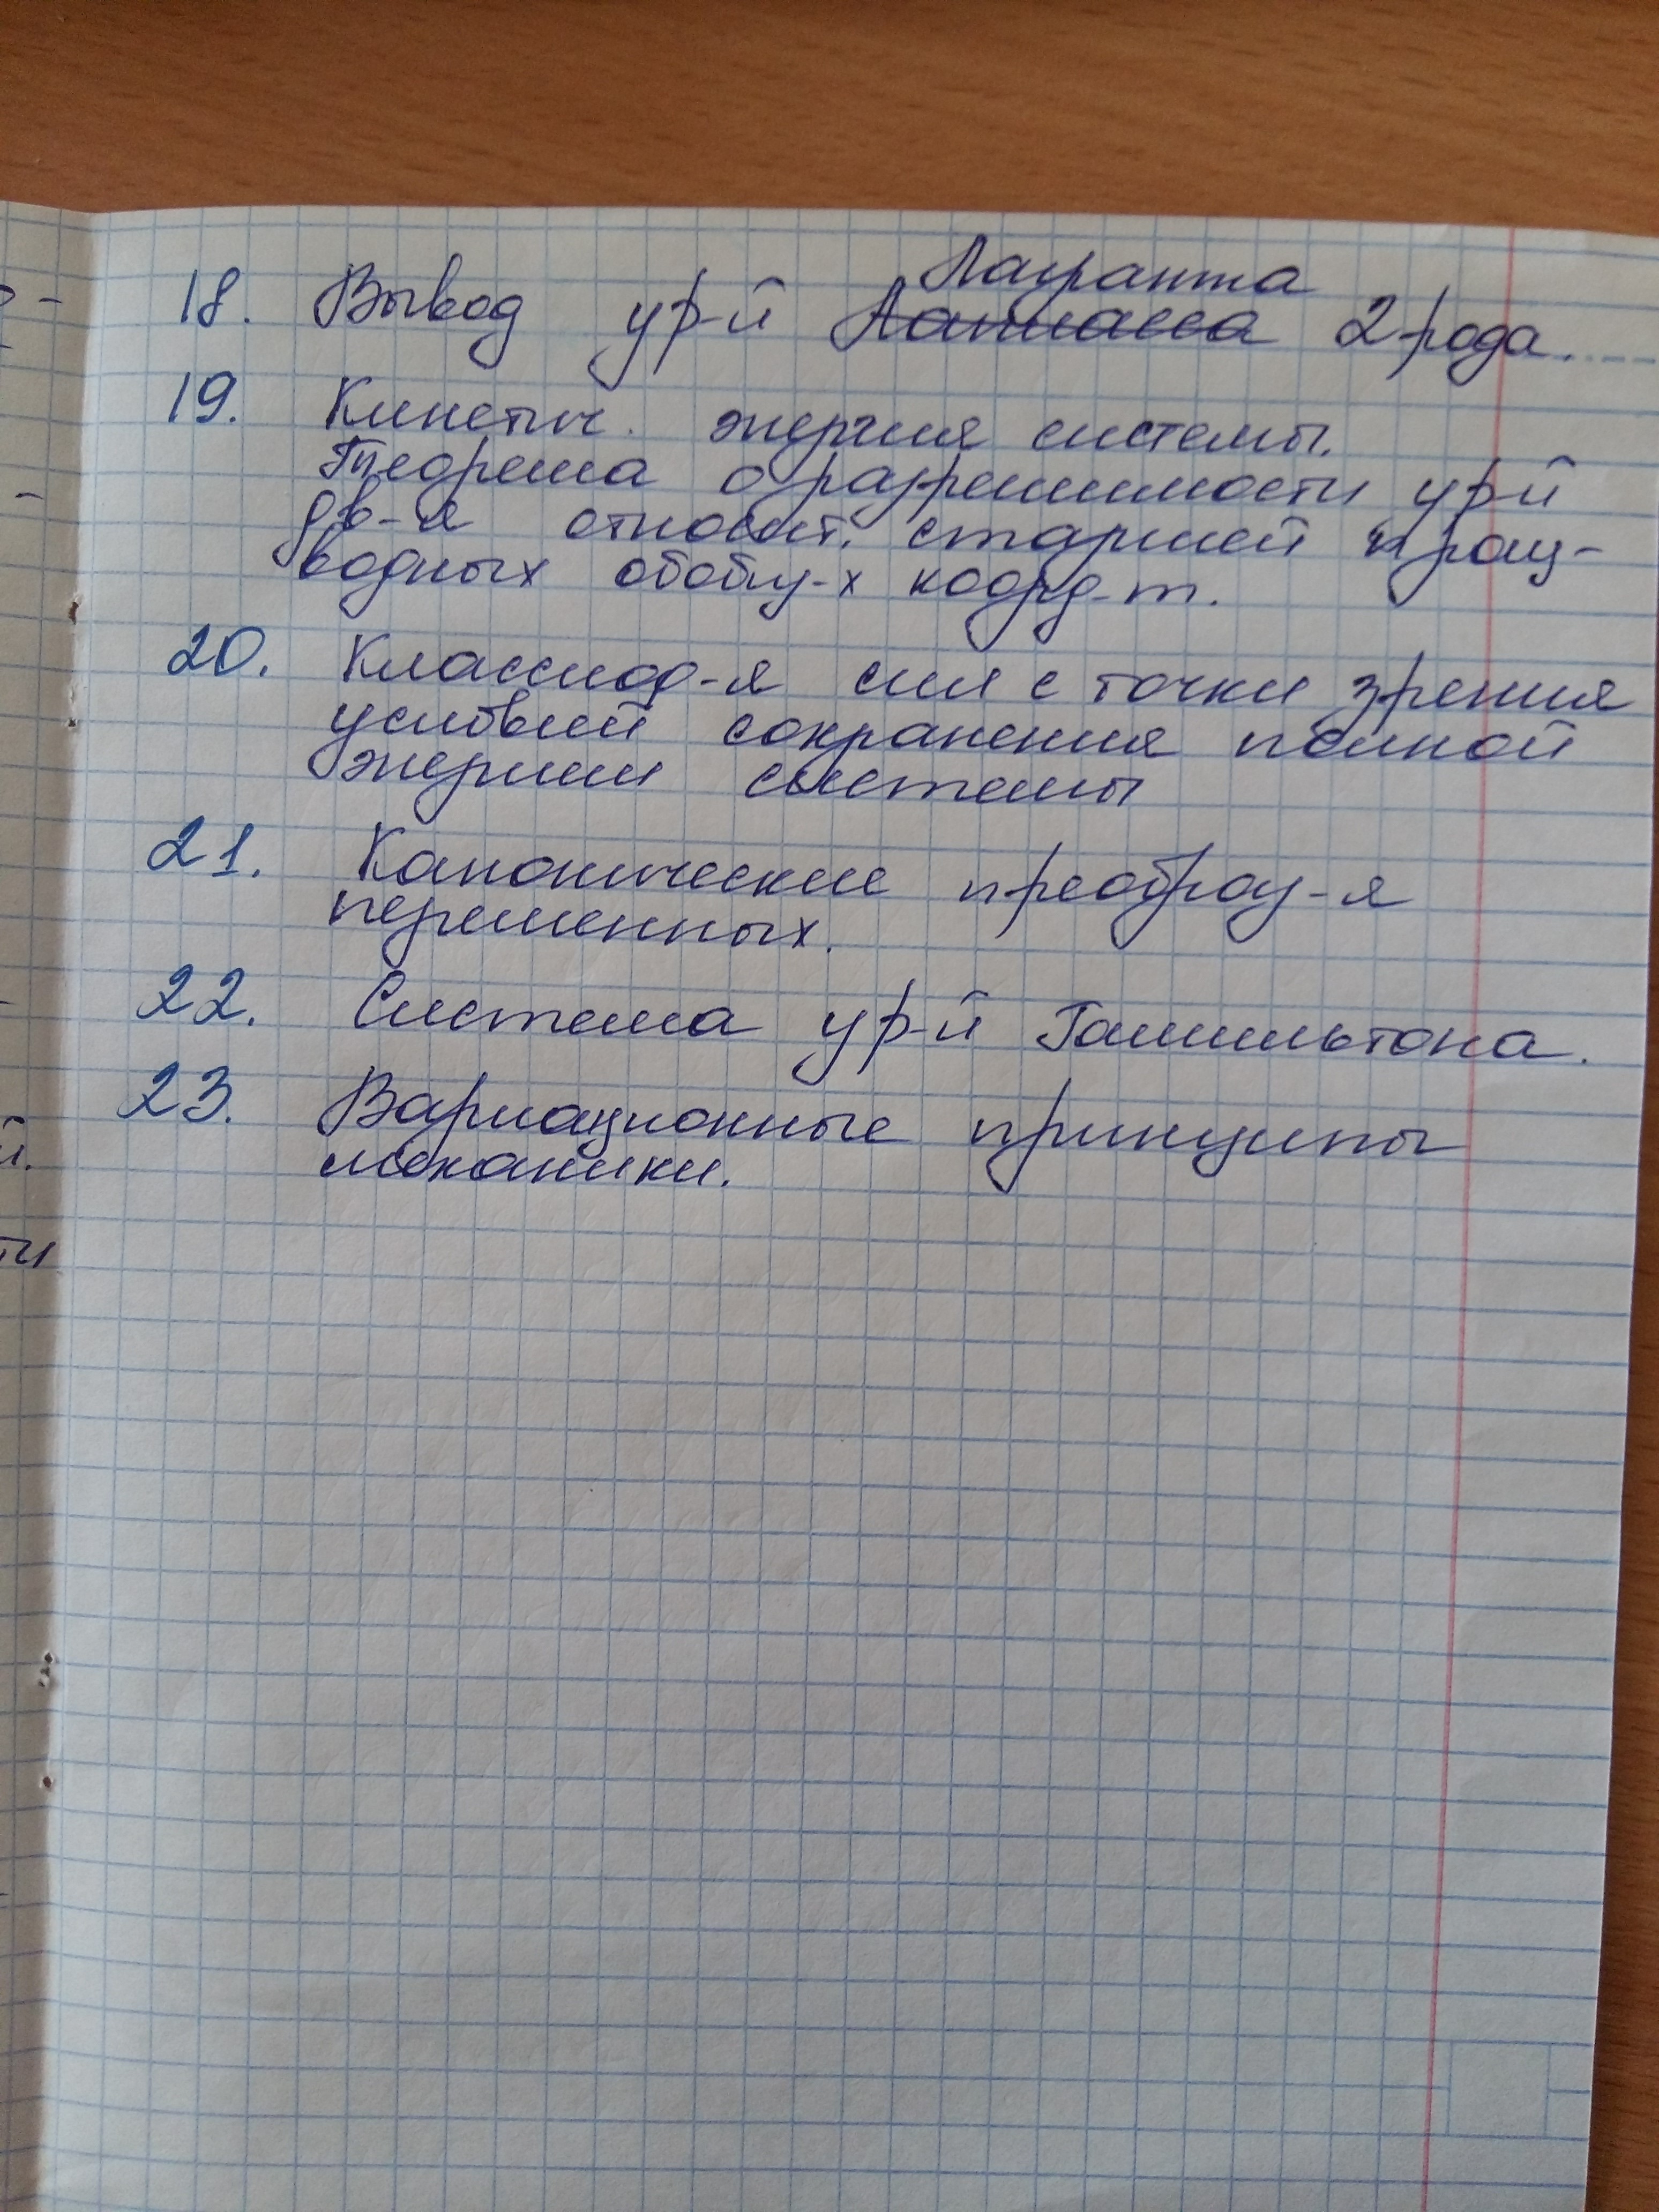 Лагранжа
18. Вывод ур-й Лапласса 2 рода.
19. Кинетич. энергия системы.
Теорема о разрешимости ур-й
дв-я относит. старшей произ-
водных обобщ-х коорд-т.
20. Классиф-я сил с точки зрения
условий сохранения полной
энергии системы
21. Канонические преобраз-я
переменных.
22. Система ур-й Гамильтона.
23. Вариационные принципы
механики.
й.
ти